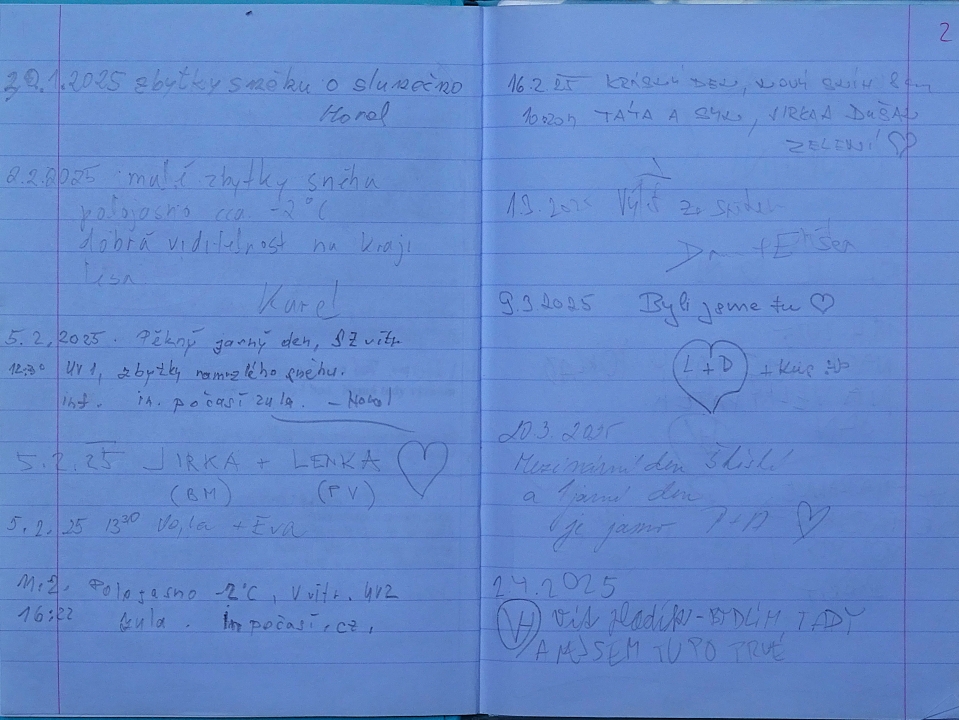 29.1.2025 zbytky sněhu o slunečno
Horal
2.2.2025 malé zbytky sněhu
polojasno cca -2°C
dobrá viditelnost na kraji
lesa
Karel
5.2.2025. Pěkný jarný den, SZ vítr
12:30 UV1, zbytky namrzlého sněhu.
inf. in. počasí Zula. - Horal
5.2.25 JIRKA + LENKA
(BM) (PV)
5.2.25 13³⁰ Vojta + Eva
11.2. Pologasno -2°C, V vítr. UV2
16:22 Zula. In počasí.cz.
2
16.2.25 KRÁSNÝ DEN, NOVÝ SNÍH 8 cm
TÁTA A SYN, JIRKA A DUŠAN
ZELENÍ ♡
1.3.2025 Výlet za
9.3.2025 Byli jsme tu ♡
L + D
20.3.2025
Mezinárodní den štěstí
a 1 jarní den
je jasno P+D ♡
2.4.2025
VH Vít Hladík - BYDLÍM TADY
A JSEM TU PO PRVÉ